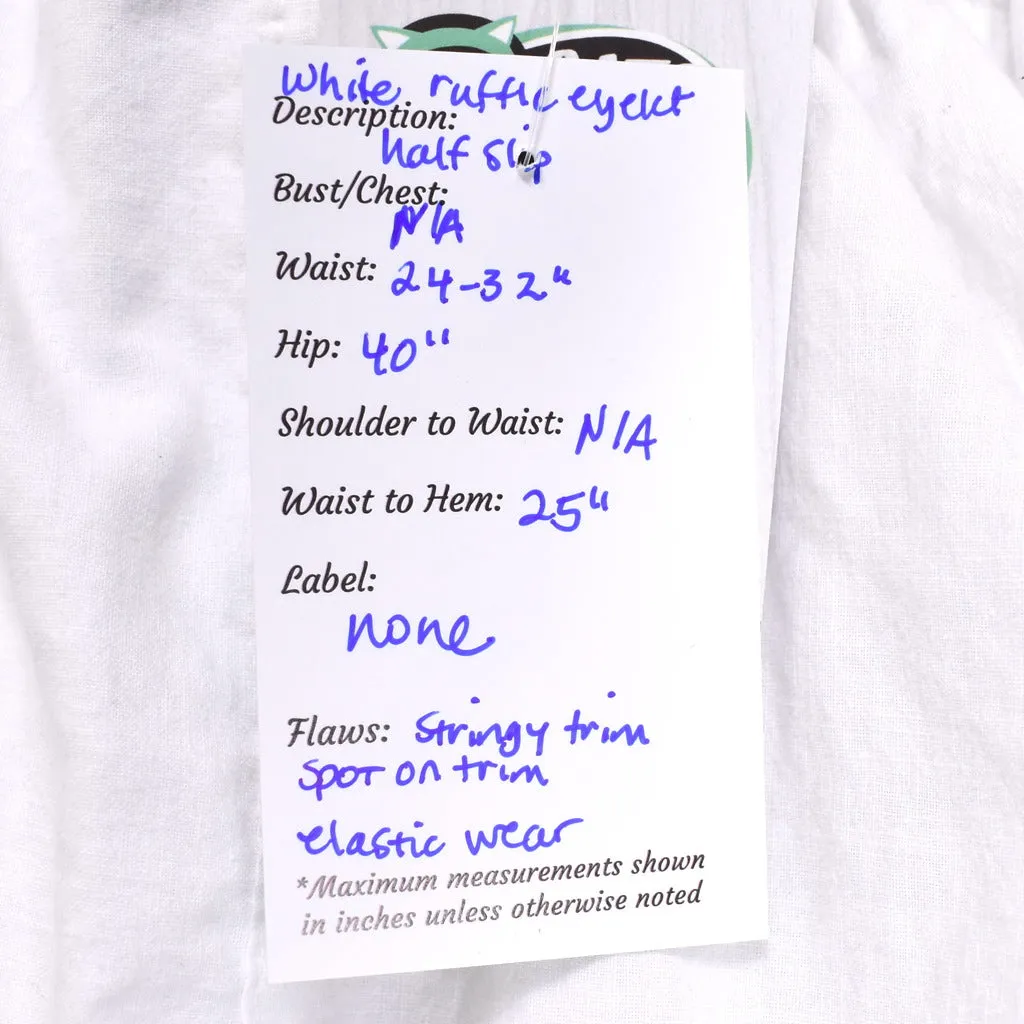 white ruffle eyelet
Description:
half slip
Bust/Chest:
N/A
Waist: 24-32"
Hip: 40"
Shoulder to Waist: N/A
Waist to Hem: 25"
Label:
none
Flaws: stringy trim
spot on trim
elastic wear
*Maximum measurements shown
in inches unless otherwise noted